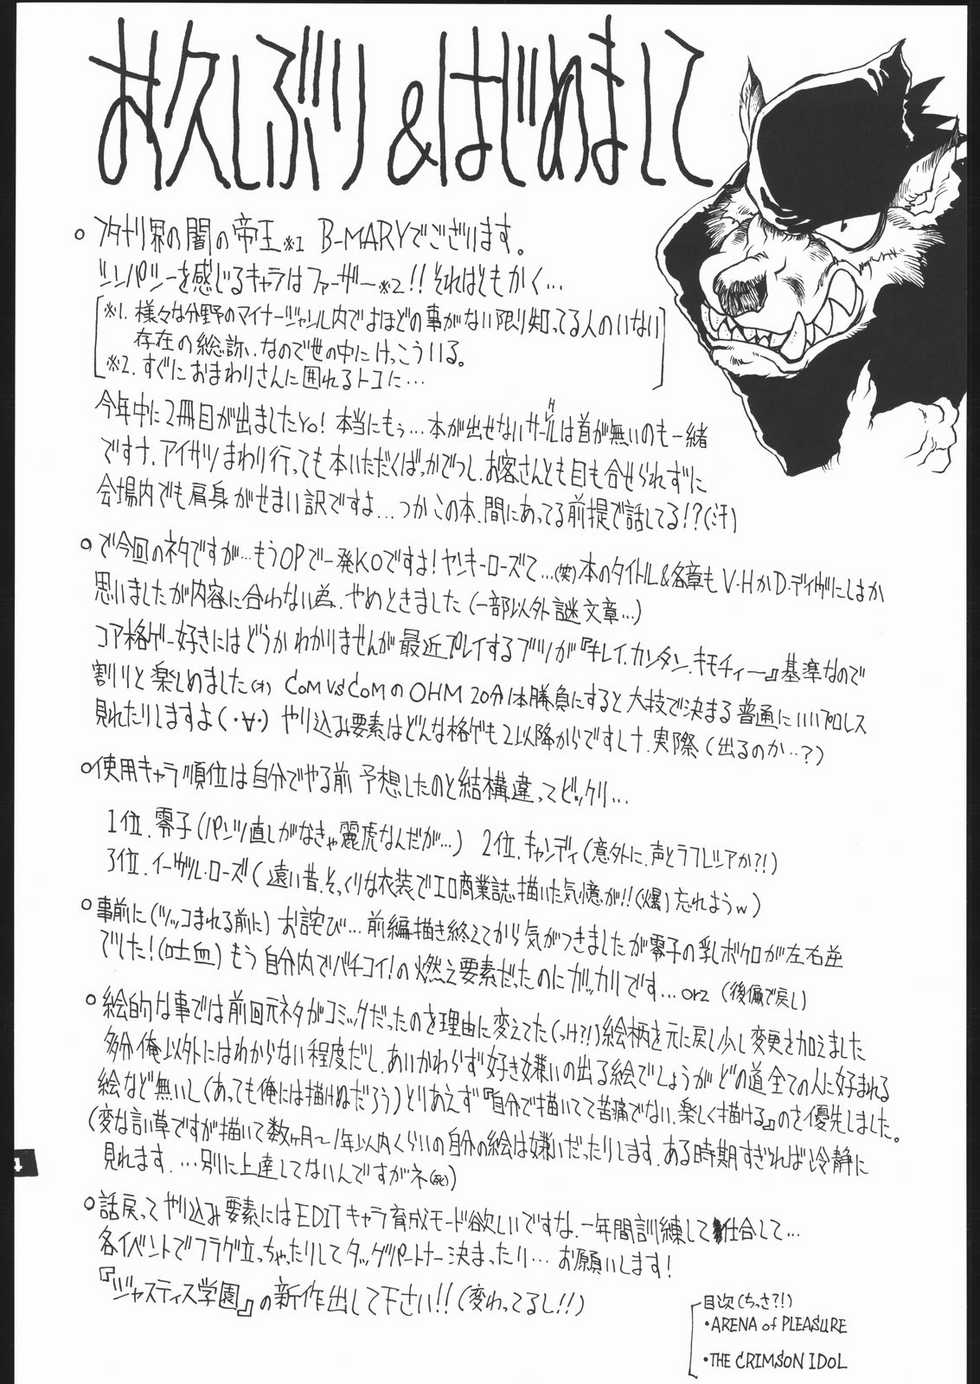 お久しぶり&はじめまして
○フタナリ界の闇の帝王※1 B-MARYでございます。
シンパシーを感じるキャラはファーザー※2!!それはともかく…
※1.様々な分野のマイナージャンル内でよほどの事がない限り知ってる人のいない
存在の総称、なので世の中にけっこういる。
※2.すぐにおまわりさんに囲れるトコに…
今年中に2冊目が出ましたYo!本当にもぅ…本が出せないサークルは首が無いのも一緒
ですナ.アイサツまわり行っても本いただくばっかでつし.お客さんとも目も合せられずに
会場内でも肩身がせまい訳ですよ…つかこの本、間にあってる前提で話してる!?(汗)
○で今回のネタですが…もうOPで一発KOですよ!ヤンキーローズて…(笑)本のタイトル&各章もV・HかD・デイヴにしよか
思いましたが内容に合わない為、やめときました(一部以外謎文章…)
コア格ゲー好きにはどうかわかりませんが最近プレイするブツが『キレイ、カンタン、キモチィー』基準なので
割りと楽しめました(オ) COM VS COMのOHM 20分1本勝負にすると大技で決まる普通にいいプロレス
見れたりしますよ(・∀・) やり込み要素はどんな格ゲも2以降からですしナ.実際(出るのか…?)
○使用キャラ順位は自分でやる前予想したのと結構違ってビックリ…
1位.零子(パンツ直しがなきゃ麗虎なんだが…) 2位.キャンディ(意外に、声とラフレシアか?!)
3位.イーヴル・ローズ(遠い昔、そっくりな衣装でエロ商業誌描いた気憶が!!(爆)忘れようw)
○事前に(ツッコまれる前に)お詫び…前編描き終えてから気がつきましたが零子の乳ボクロが左右逆
でした!(吐血)もう自分内でバチコイ!の燃え要素だったのにガッカリです…orz (後偏で戻し)
○絵的な事では前回元ネタがコミックだったのを理由に変えてた(っけ?!)絵柄を元に戻し少し変更を加えました
多分俺以外にはわからない程度だし、あいかわらず好き嫌いの出る絵でしょうがどの道全ての人に好まれる
絵など無いし(あっても俺には描けぬだろう)とりあえず『自分で描いてて苦痛でない、楽しく描ける』のを優先しました。
(変な言い草ですが描いて数ヶ月〜1年以内くらいの自分の絵は嫌いだったりします.ある時期すぎれば冷静に
見れます.…別に上達してないんですがネ(死))
○話戻ってやり込み要素にはEDITキャラ育成モード欲しいですな、一年間訓練して仕合して…
各イベントでフラグ立っちゃたりしてタッグパートナー決まったり…お願いします!
『ジャスティス学園』の新作出して下さい!!(変わってるし!!)
目次(ちっさ?!)
・ARENA of PLEASURE
・THE CRIMSON IDOL
4